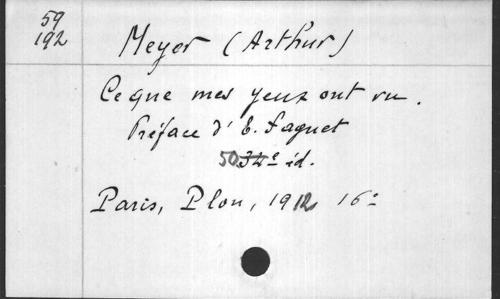 59
192
Meyer (Arthur)
Ce que mes yeux ont vu.
Préface d'E. Faguet
50 34e éd.
Paris, Plon, 1912 16º